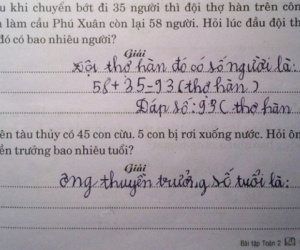 u khi chuyển bớt đi 35 người thì đội thợ hàn trên côn
làm cầu Phú Xuân còn lại 58 người. Hỏi lúc đầu đội th
đó có bao nhiêu người?
Giải
Đội thợ hàn đó có số người là:
58+35=93 (thợ hàn)
Đáp số: 93 (thợ hàn
ên tàu thủy có 45 con cừu. 5 con bị rơi xuống nước. Hỏi ôn
ền trưởng bao nhiêu tuổi?
Giải
Ông thuyền trưởng số tuổi là:
Bài tập Toán 2